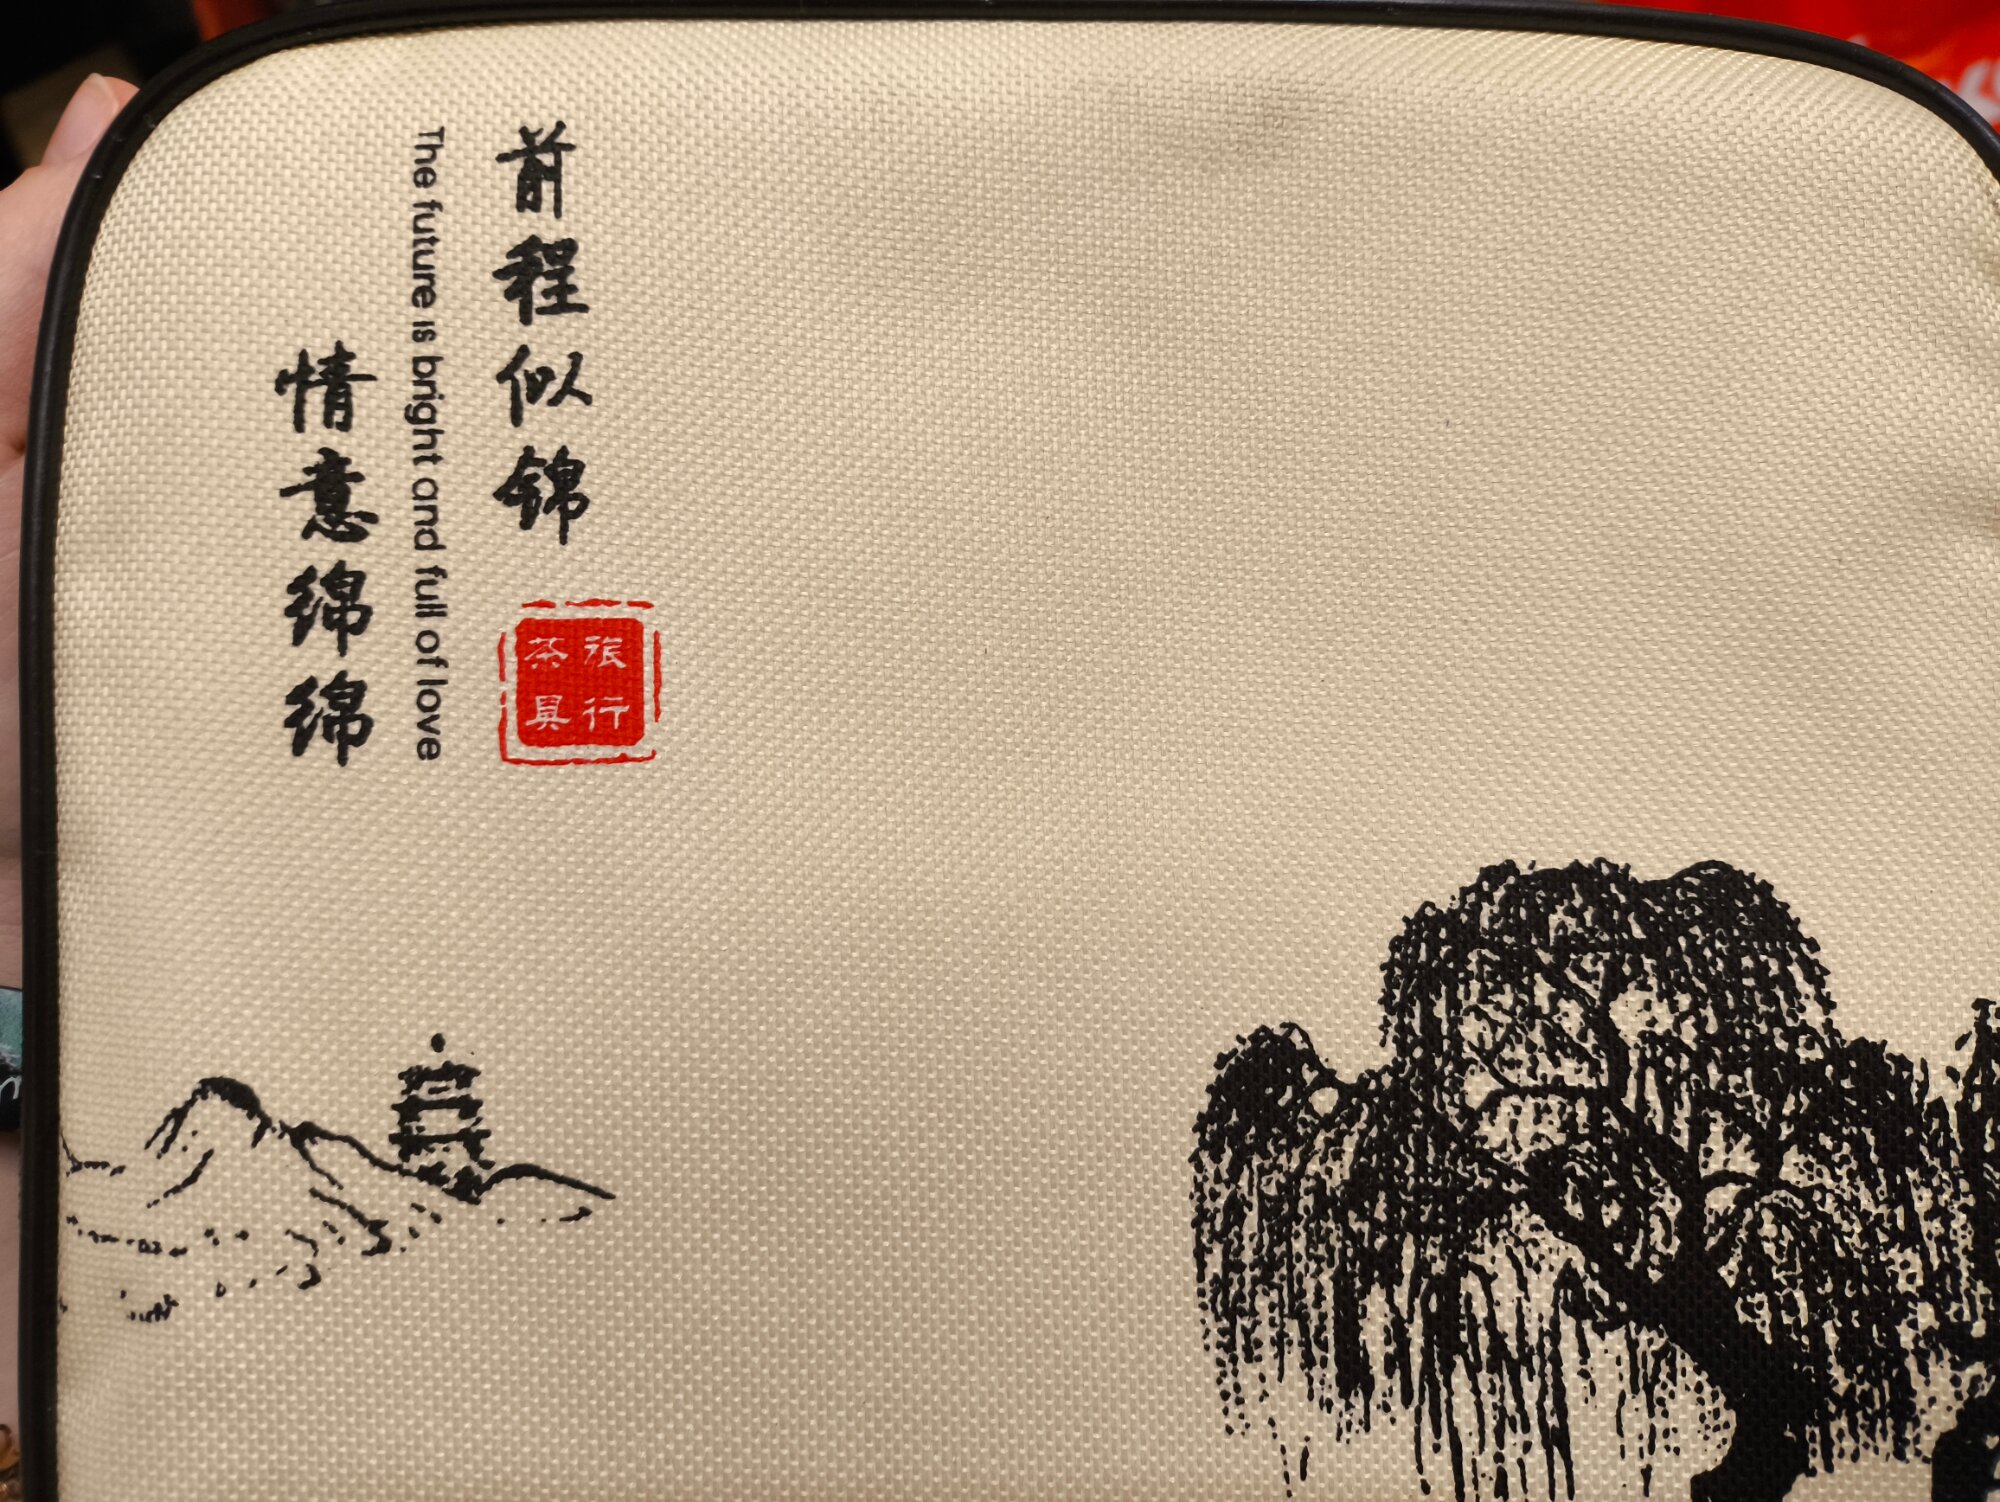 前程似锦
The future is bright and full of love
情意绵绵
旅行
茶具